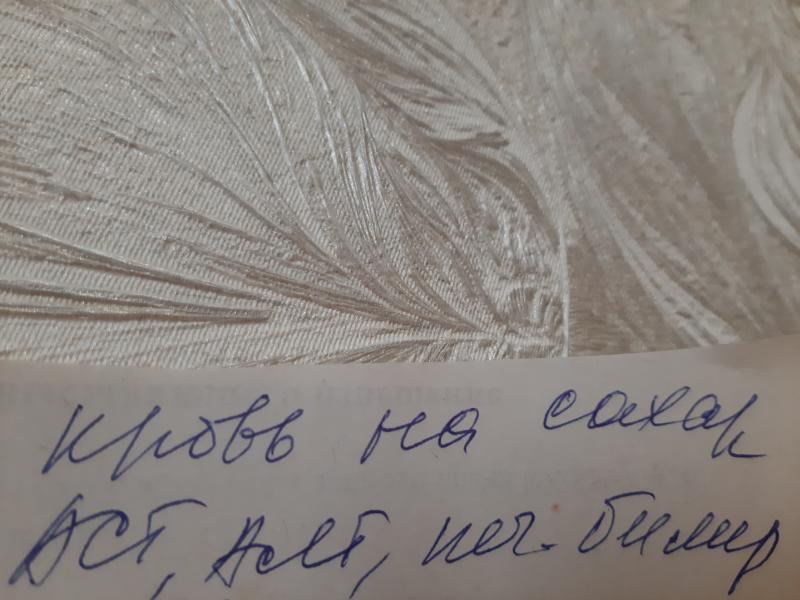 кровь на сахар
АСТ, АлТ, билир